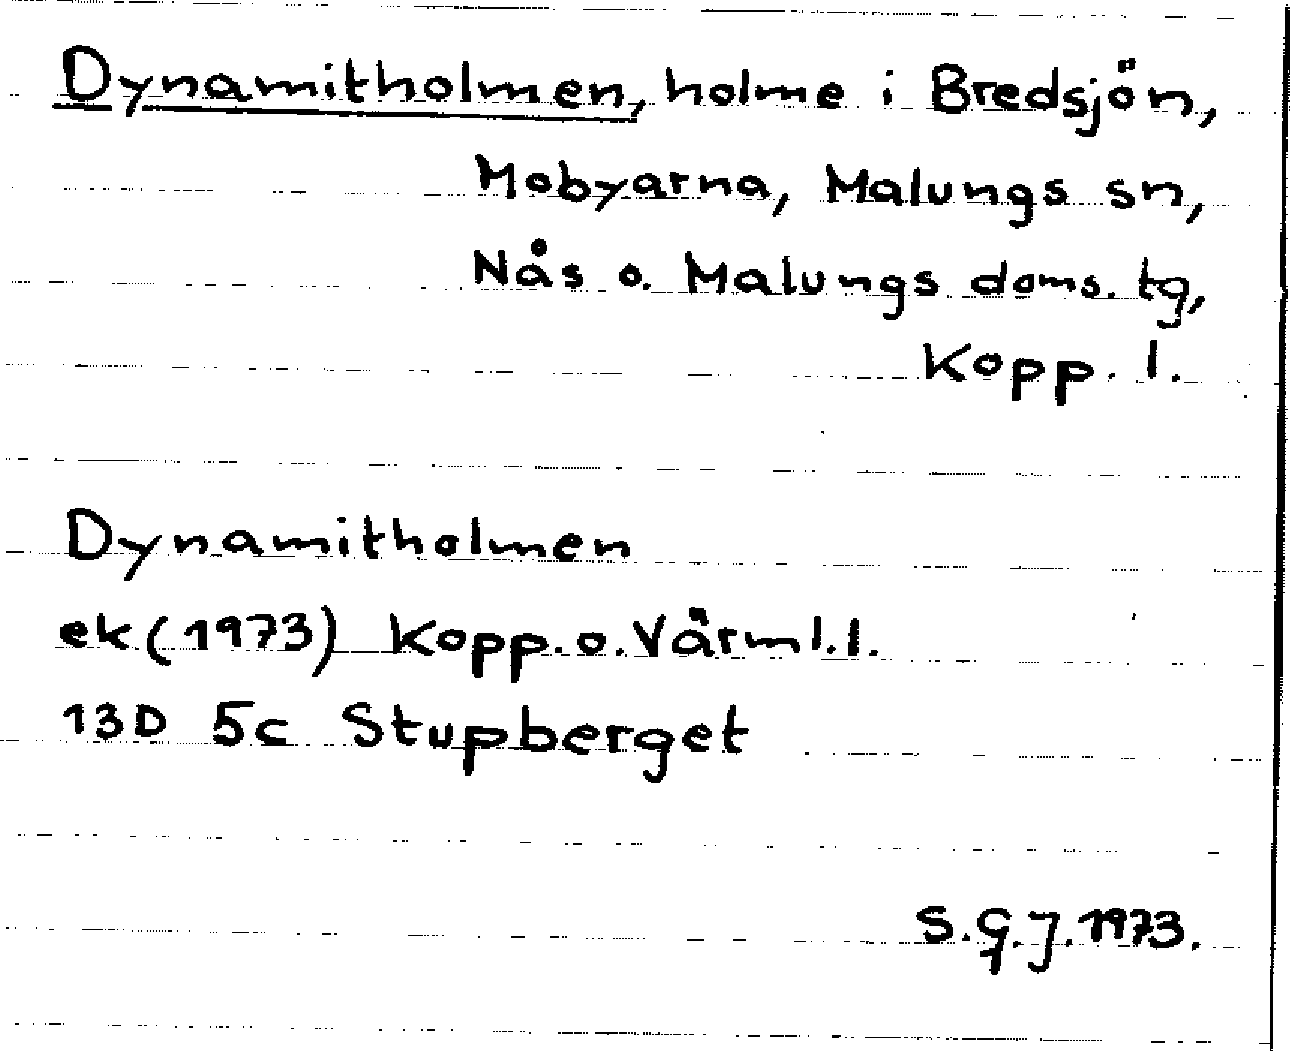 Dynamitholmen, holme i Bredsjön,
Mobyarna, Malungs sn,
Nås o. Malungs doms. tg,
Kopp. l.
Dynamitholmen
ek (1973) Kopp. o. Värml. l.
13D 5c Stupberget
S.G.J. 1973.